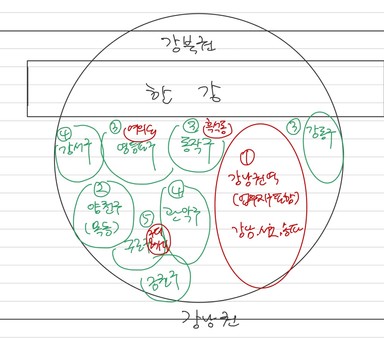 강북권
한 강
④
강서구
③
여의도
영등포구
③
흑석동
동작구
①
강남권역
강남, 서초, 송파
③
강동구
②
양천구
(목동)
④
관악구
⑤
구로
금천구
강남권